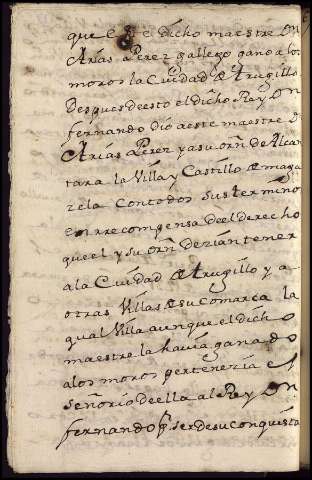 que este dicho maestre Don
Arias Perez gallego gano a los
moros la Ciudad de trugillo
Despues de esto el dicho Rey Don
fernando dió a este maestre D
Arias Perez y a su orñ de Alcan
tara la Villa y Castillo de maga
zela Con todos sus terminos
en rrecompensa de el derecho
que el y su orñ dezian tener
a la Ciudad de trugillo y a
otras Villas de su Comarca la
qual Villa aunque el dicho
maestre la havia ganado
a los moros pertenezia el
señorio de ella al Rey Don
fernando pr ser de su Conquista